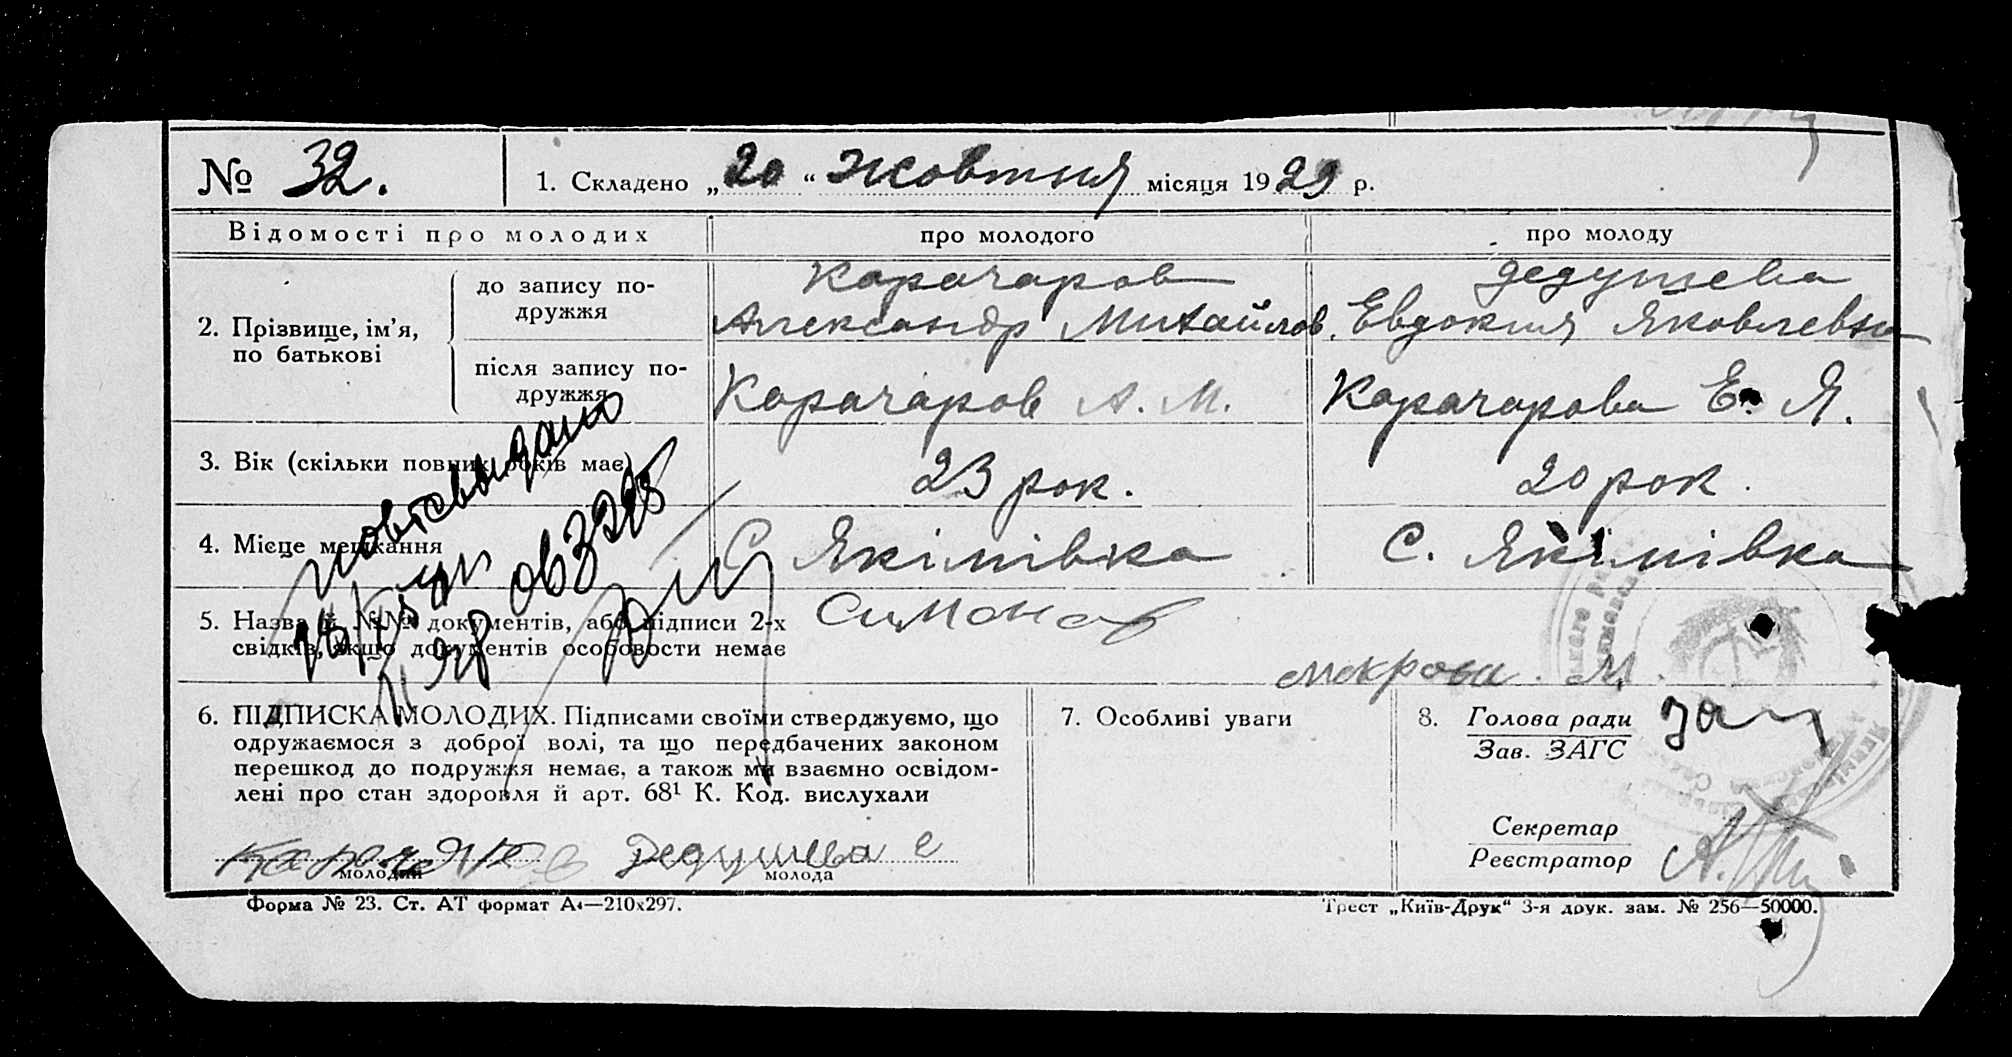 № 32. 1. Складено „20“ Жовтня місяця 1929 р.
Відомості про молодих про молодого про молоду
2. Прізвище, ім’я, по батькові
до запису подружжя
Карачаров
Александр Михайлов.
Дедушева
Евдокия Яковлевна
після запису подружжя
Карачаров А. М.
Карачарова Е. Я.
3. Вік (скільки повних років має)
23 рок.
20 рок.
4. Місце мешкання
С Якімівка
С. Якімівка
5. Назва й №№ документів, або підписи 2-х
свідків, якщо документів особовости немає
Симонов
М.
6. ПІДПИСКА МОЛОДИХ. Підписами своїми стверджуємо, що
одружаємося з доброї волі, та що передбачених законом
перешкод до подружжя немає, а також ми взаємно освідом-
лені про стан здоровля й арт. 68¹ К. Код. вислухали
Карачаров Дедушева е
молодий молода
7. Особливі уваги
8. Голова ради
Зав. ЗАГС
Секретар
Реєстратор
Форма № 23. Ст. АТ формат А4—210х297.
Трест „Київ-Друк“ 3-я друк. зам. № 256—50000.